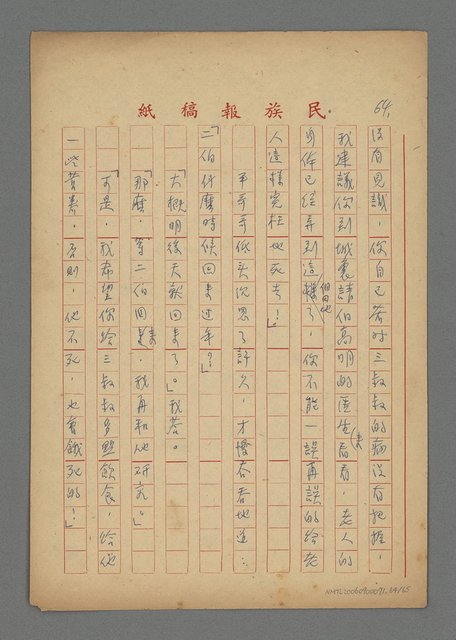 民族報稿紙
64.
沒有見識，你自己若对三叔叔的病沒有把握，
我建議你到城裏請伯高明的医生看看，老人的
身体已經弄到這樣了，你不能一誤再誤的給老
人這樣冤枉地死去！」
平哥哥低头沉思了許久，才慢吞吞地道：
「二伯什麼時候回来过年？」
「大概明後天就回来了。」我答。
「那麼，等二伯回来，我再和他研究。」
「可是，我希望你給三叔叔多點飲食，給他
一些营养，否則，他不死，也會餓死的！」
NMTL20060900091.64/65